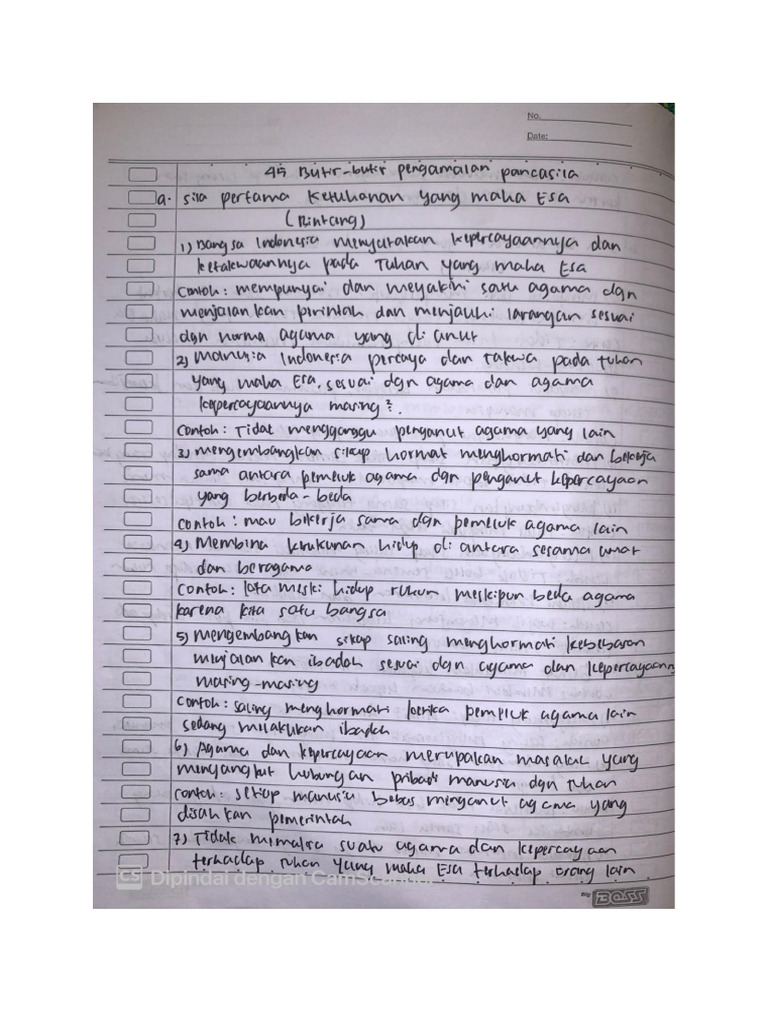 No.
Date:
45 Butir-butir pengamalan pancasila
a. sila pertama Ketuhanan yang maha Esa
(Bintang)
1) Bangsa Indonesia menyatakan kepercayaannya dan
ketakwaannya pada Tuhan yang maha Esa
Contoh: mempunyai dan meyakini satu agama dgn
menjalankan perintah dan menjauhi larangan sesuai
dgn norma agama yang di anut
2) Manusia Indonesia percaya dan takwa pada tuhan
yang maha Esa, sesuai dgn agama dan agama
kepercayaannya masing².
Contoh: Tidak mengganggu penganut agama yang lain
3) mengembangkan sikap hormat menghormati dan bekerja
sama antara pemeluk agama dgn penganut kepercayaan
yang berbeda-beda
Contoh: mau bekerja sama dgn pemeluk agama lain
4) Membina kerukunan hidup di antara sesama umat
dan beragama
Contoh: kita meski hidup rukun meskipun beda agama
karena kita satu bangsa
5) Mengembangkan sikap saling menghormati kebebasan
menjalankan ibadah sesuai dgn agama dan kepercayaan
masing-masing
Contoh: saling menghormati ketika pemeluk agama lain
sedang melakukan ibadah
6) Agama dan kepercayaan merupakan masalah yang
menyangkut hubungan pribadi manusia dgn tuhan
Contoh: setiap manusia bebas menganut agama yang
disahkan pemerintah
7) Tidak memaksa suatu agama dan kepercayaan
terhadap tuhan yang maha Esa terhadap orang lain
CS Dipindai dengan CamScanner
BOSS